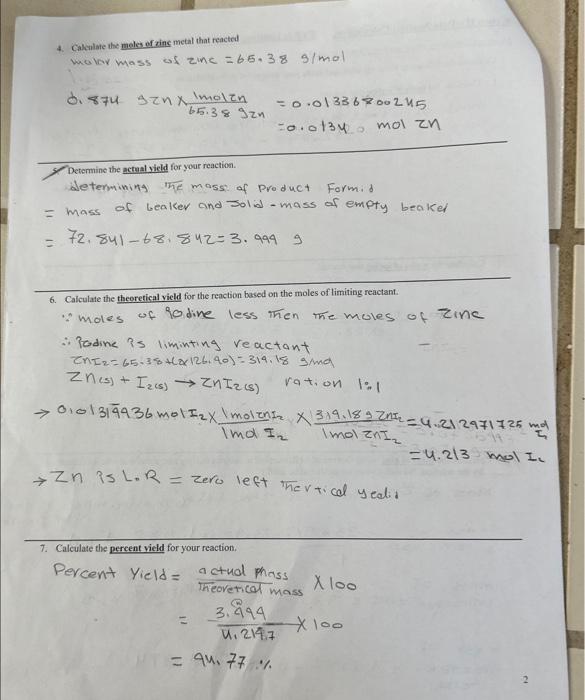 4. Calculate the moles of zinc metal that reacted
molar mass of zinc = 65.38 g/mol
0.874 gzn x 1molzn / 65.38 gzn = 0.01336800245
= 0.0134 mol zn
5. Determine the actual yield for your reaction.
determining the mass of product Formid
= mass of beaker and solid - mass of empty beaker
= 72.841 - 68.842 = 3.999 g
6. Calculate the theoretical yield for the reaction based on the moles of limiting reactant.
∵ moles of Iodine less then the moles of zinc
∴ Iodine is liminting reactant
ZnI2 = 65.38 + (2x126.90) = 319.18 g/mol
Zn(s) + I2(s) → ZnI2(s) ration 1:1
→ 0.01319936 mol I2 x 1molznI2 / 1mol I2 x 319.18 g ZnI2 / 1mol ZnI2 = 4.212971725 mol I2
= 4.213 mol I2
→ Zn is L.R = zero left
7. Calculate the percent yield for your reaction.
Percent Yield = actual mass / Theoretical mass x 100
= 3.999 / x 100
= 94.77 %
2